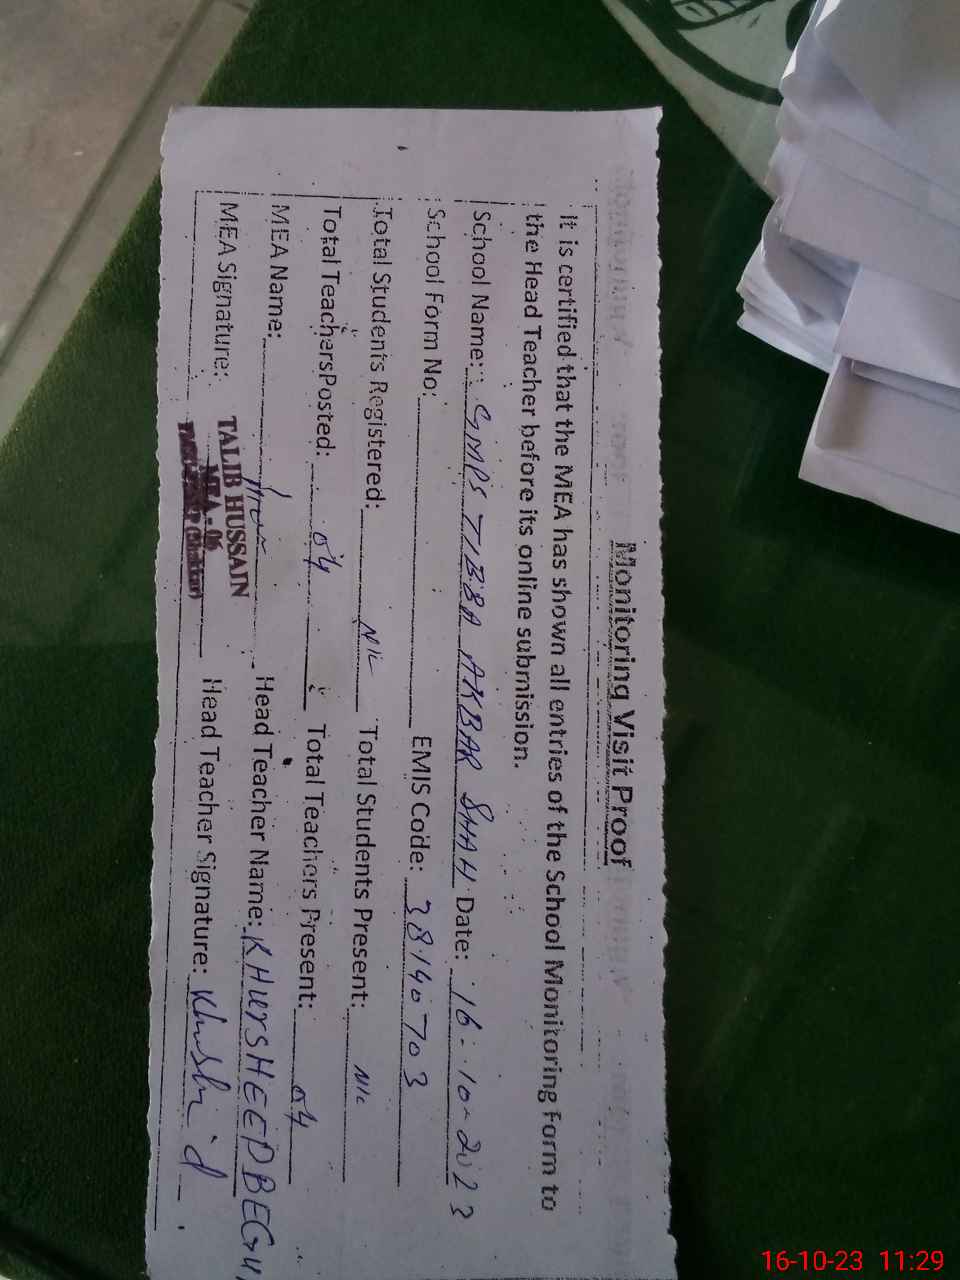 Monitoring Visit Proof
It is certified that the MEA has shown all entries of the School Monitoring Form to
the Head Teacher before its online submission.
School Name: GMPS TIBBA AKBAR SHAH Date: 16-10-2023
School Form No: EMIS Code: 38140703
Total Students Registered: N/C Total Students Present: N/C
Total Teachers Posted: 04 Total Teachers Present: 04
MEA Name: Head Teacher Name: KHURSHEED BEGU
MEA Signature: Head Teacher Signature: Khushi d
TALIB HUSSAIN
MEA-06
16-10-23 11:29